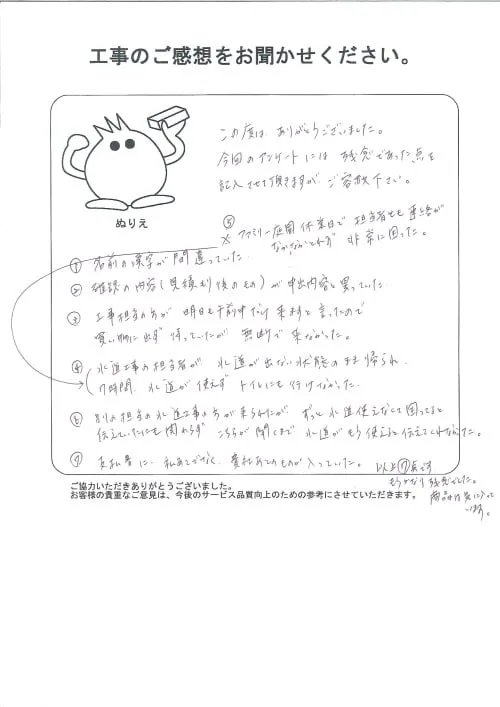 工事のご感想をお聞かせください。
この度は、ありがとうございました。
今回のアンケートには 残念であった点を
記入させて頂きますが、ご容赦下さい。
ぬりえ
⑤
※ ファミリー庭園 休業日で 担当者とも 連絡が
なかなかとれず 非常に困った。
① 名前の漢字が間違っていた。
② 確認の内容(見積もり後のもの)が申出内容と異っていた。
③ 工事担当の方が 明日も午前中だけ来ますと言ったので
買い物に出ず 待っていたが 無断で来なかった。
④ 水道工事の担当者が、水道が出ない状態のまま帰られ、
7時間、水道が使えず トイレにも行けなかった。
⑥ 別の担当の水道工事の方が来られたが、ずっと水道使えなくて困ってると
伝えていたにも関わらず こちらが聞くまで 水道がもう使えると伝えてくれなかった。
⑦ 支払書に… 私あてでなく、貴社あてのものが入っていた。
以上⑦点です
もうかなり残念でした。
商品は気に入って
います。
ご協力いただきありがとうございました。
お客様の貴重なご意見は、今後のサービス品質向上のための参考にさせていただきます。